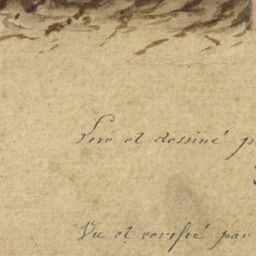 Levé et dessiné p
Vu et verifié par